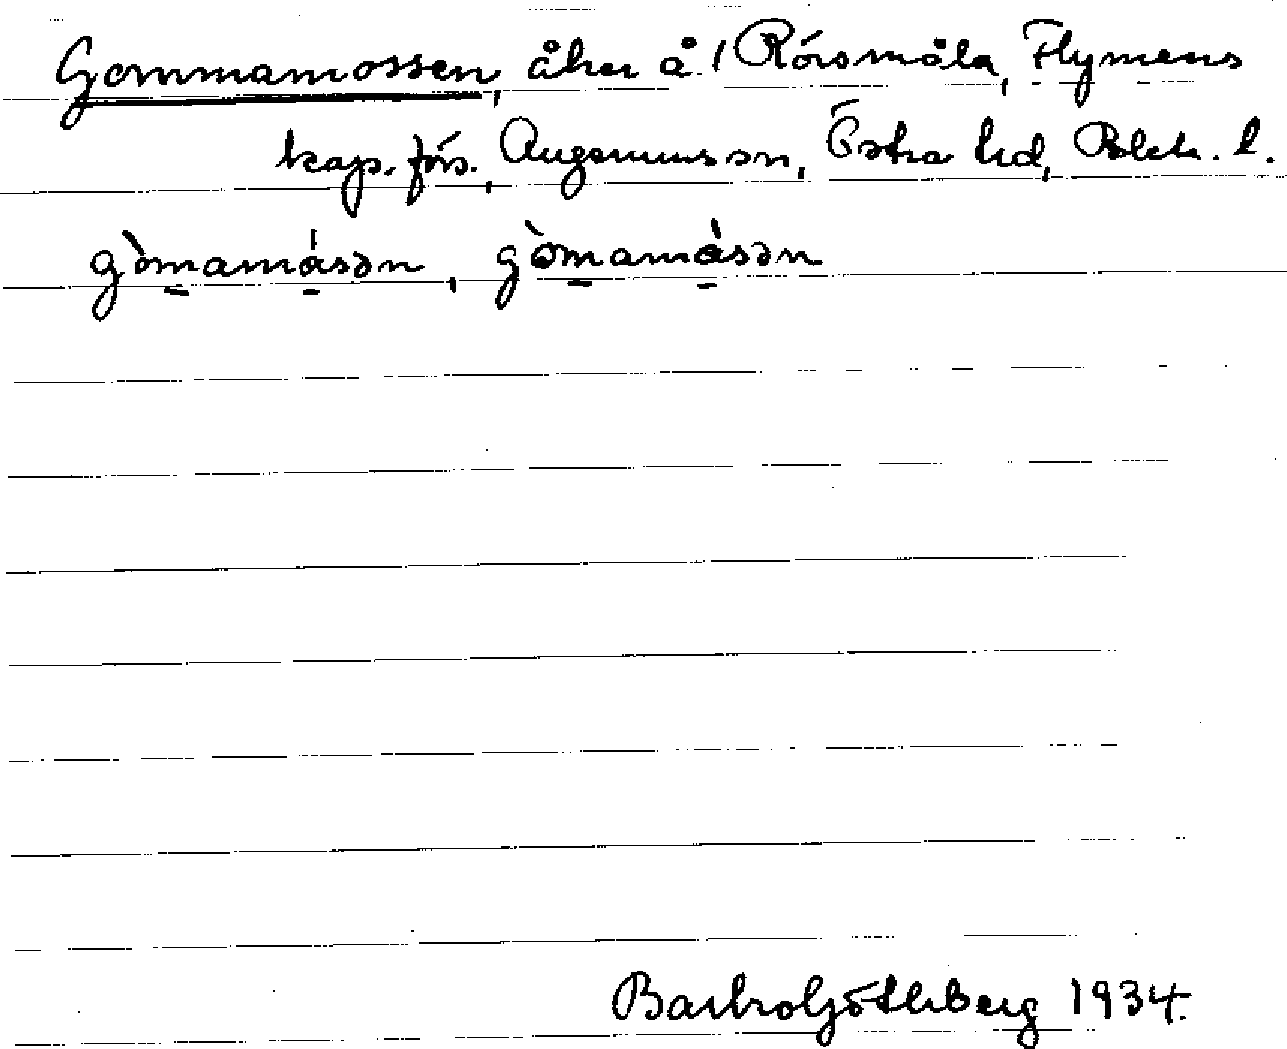 Gommamossen, åker å 1 Rörsmåla, Flymens
kap. förs., Augerums sn, Östra hd, Blek. l.
gòmamásən, gòmamásən
Barbro Götherberg 1934.